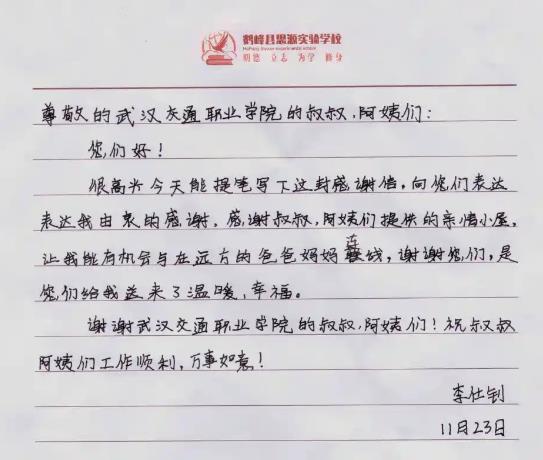 鹤峰县思源实验学校
HeFeng Siyuan experimental school
明德 立志 为学 修身
尊敬的武汉交通职业学院的叔叔,阿姨们:
您们好!
很高兴今天能提笔写下这封感谢信,向您们表达
表达我由衷的感谢,感谢叔叔,阿姨们提供的亲情小屋,
让我能有机会与在远方的爸爸妈妈连线,谢谢您们,是
您们给我送来了温暖,幸福。
谢谢武汉交通职业学院的叔叔,阿姨们!祝叔叔
阿姨们工作顺利,万事如意!
李仕钊
11月23日